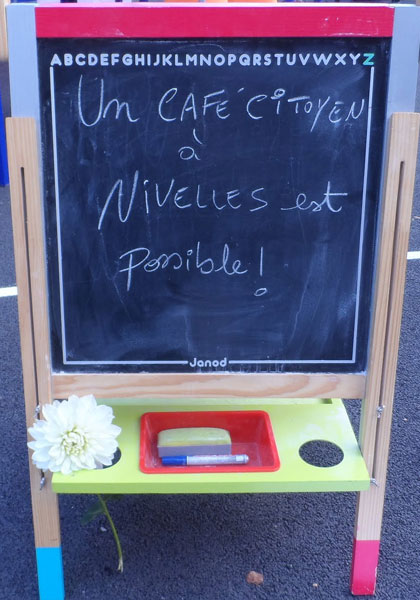 ABCDEFGHIJKLMNOPQRSTUVWXYZ
Un CAFÉ CiTOYEN
à
NiVELLES est
possible !
Janod